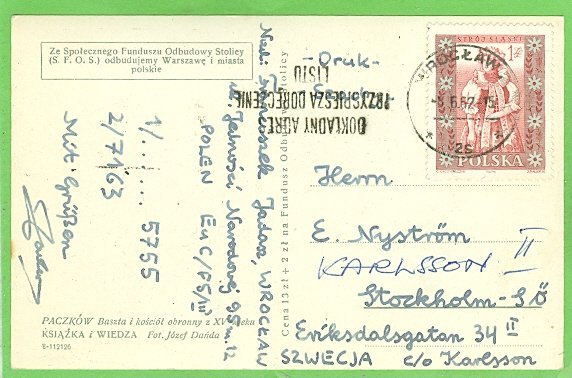 Ze Społecznego Funduszu Odbudowy Stolicy
(S. F. O. S.) odbudujemy Warszawę i miasta
polskie
1/...... 5755
2/7163
Mit Grüßen
Jadasz, WROCŁAW
ul. Jedności Narodowej 95 m. 12
POLEN EuC/FS/III
PACZKÓW Baszta i kościół obronny z XV wieku
KSIĄŻKA i WIEDZA Fot. Józef Dańda
B-112126
Cena 13 zł + 2 zł na Fundusz Odbudowy Stolicy
-Druk-
DOKŁADNY ADRES
PRZYSPIESZA DORĘCZENIE
LISTU
WROCŁAW
STRÓJ ŚLĄSKI
1
POLSKA
Herrn
E. Nyström
KARLSSON II
Stockholm-SÖ
Eriksdalsgatan 34 II
SZWECJA c/o Karlsson